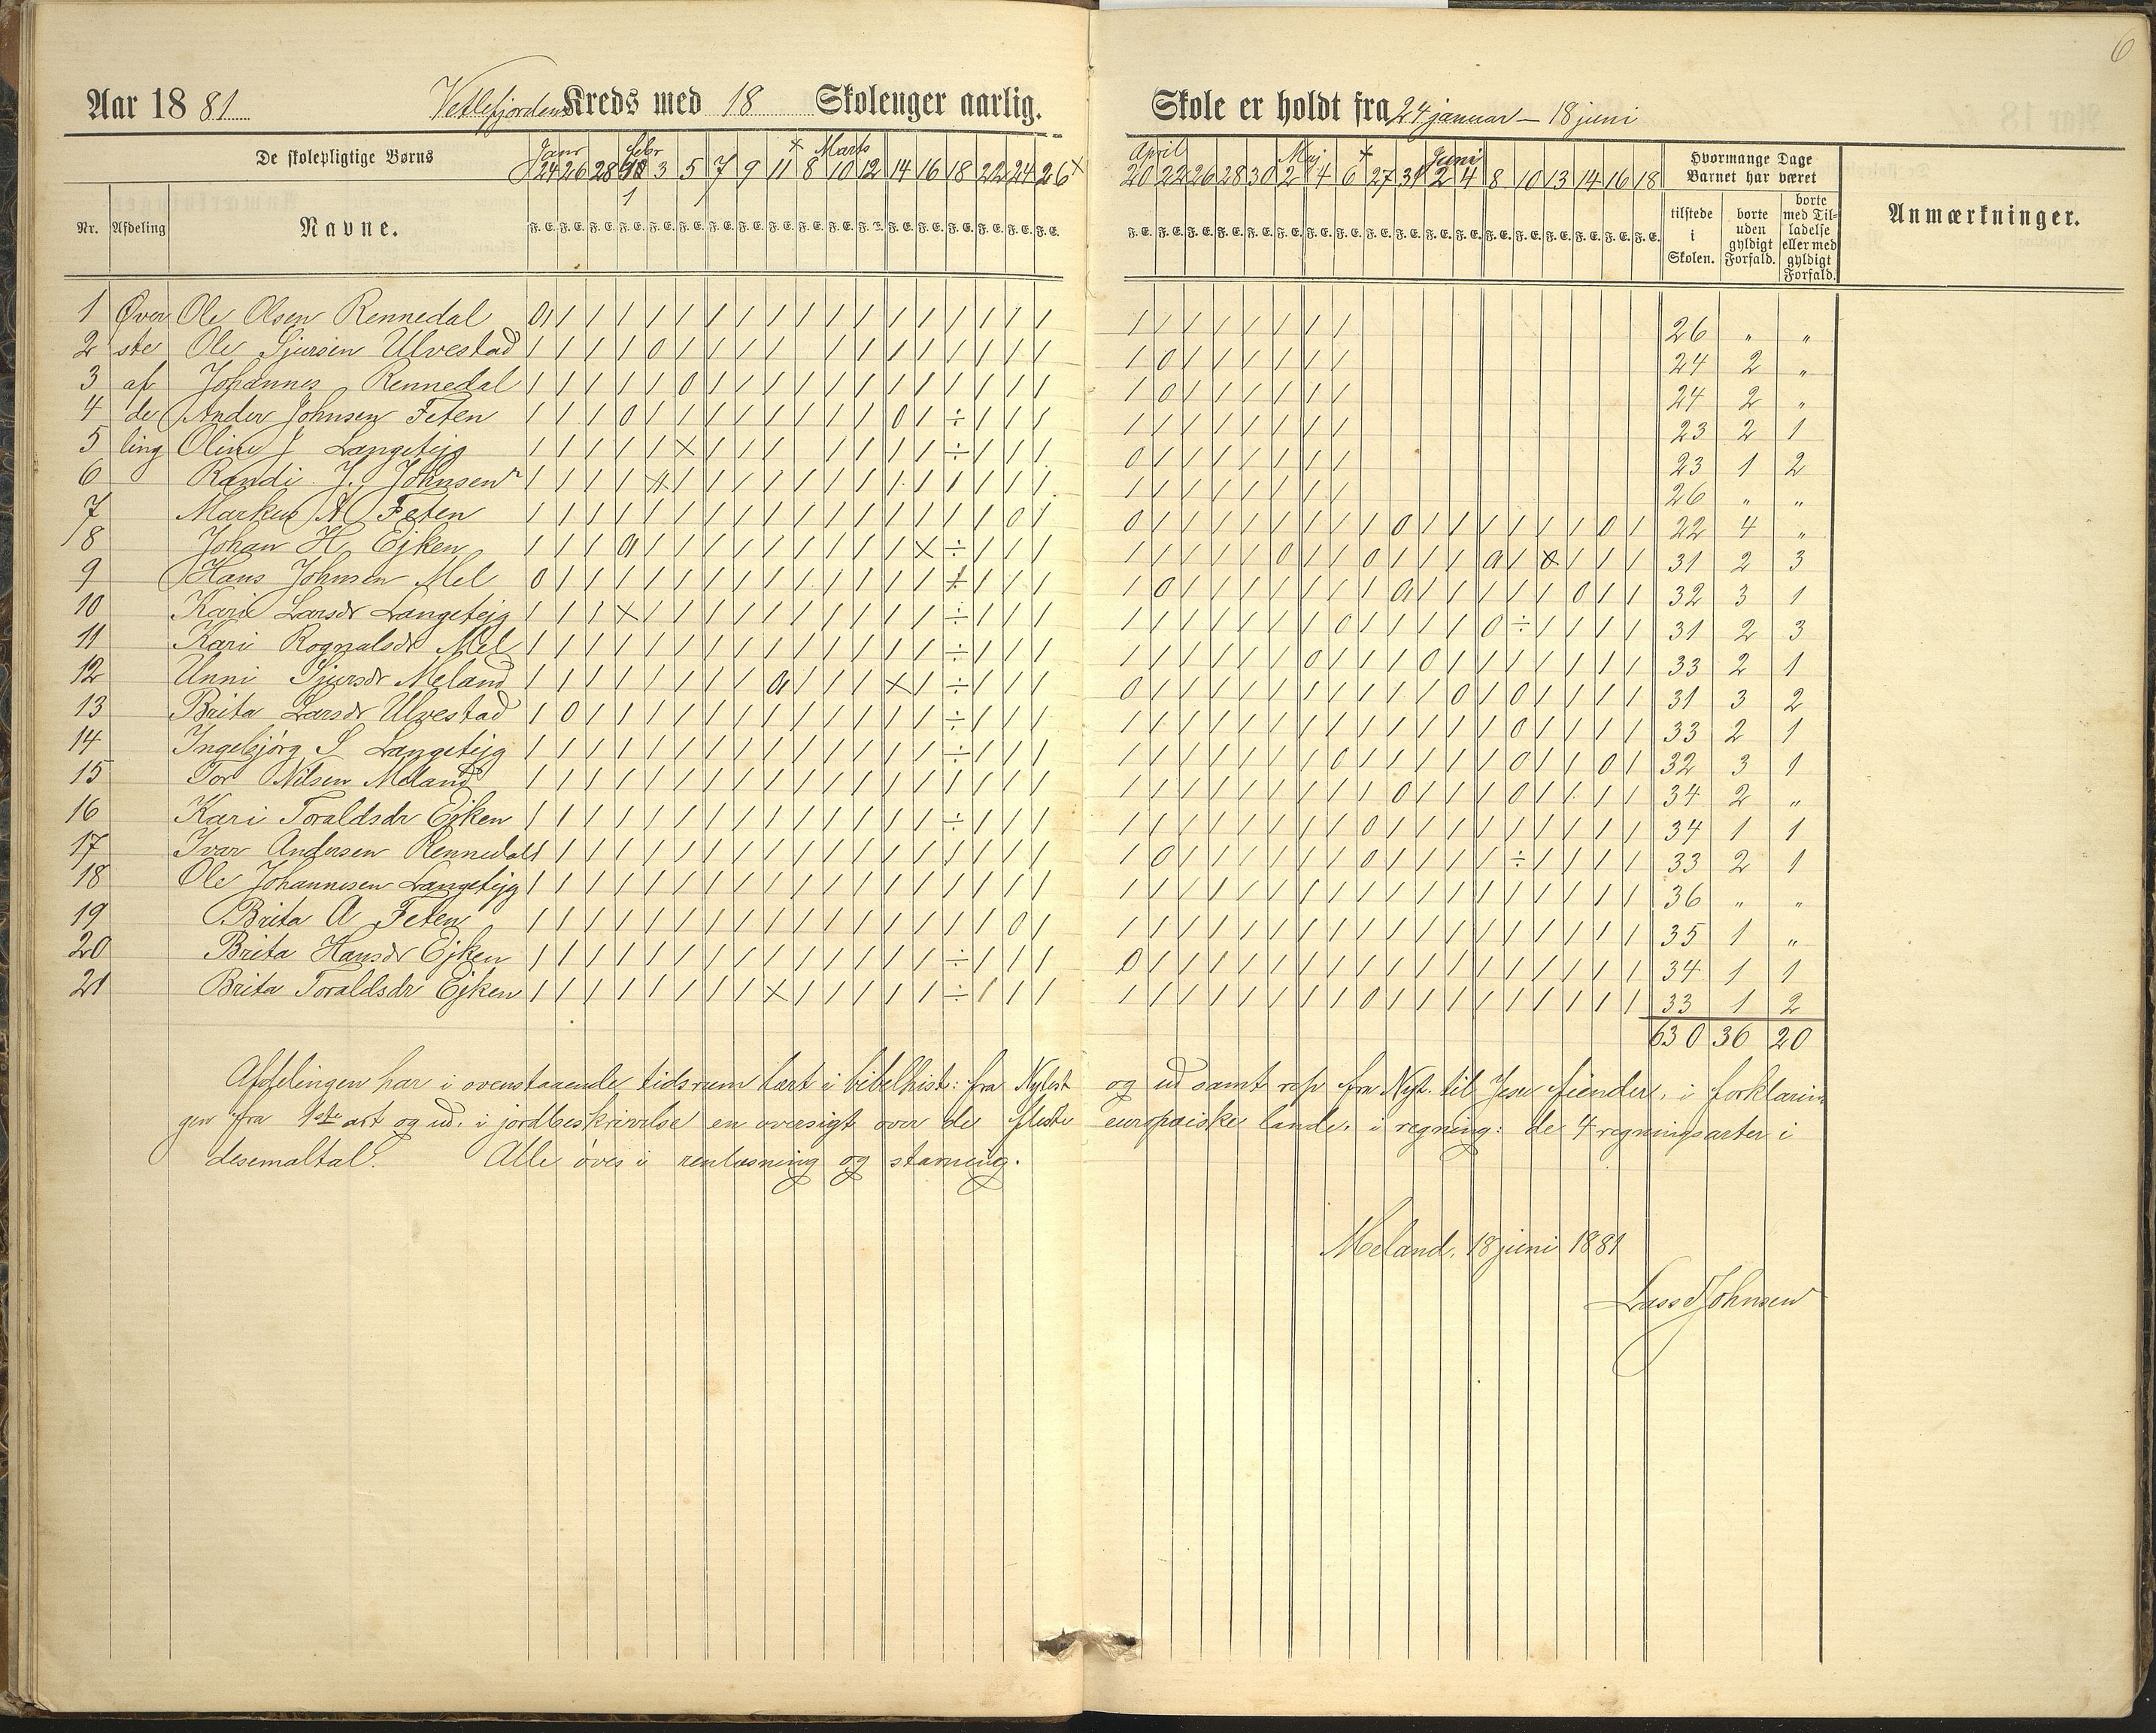 6
Aar 1881 Vetlefjordens Kreds med 18 Skoleuger aarlig. Skole er holdt fra 24 januar — 18 juni
De skolepligtige Børns
Janr Febr Marts
24 26 28 1 3 5 7 9 11 8 10 12 14 16 18 22 24 26
April Maj Juni
20 22 26 28 30 2 4 6 27 31 2 4 8 10 13 14 16 18
Hvormange Dage Barnet har været
Nr. Afdeling Navne. F. E. F. E. F. E. F. E. F. E. F. E. F. E. F. E. F. E. F. E. F. E. F. E. F. E. F. E. F. E. F. E. F. E. F. E.
F. E. F. E. F. E. F. E. F. E. F. E. F. E. F. E. F. E. F. E. F. E. F. E. F. E. F. E. F. E. F. E. F. E. F. E.
tilstede i Skolen. borte uden gyldigt Forfald. borte med Tilladelse eller med gyldigt Forfald. Anmærkninger.
1 Øver Ole Olsen Rennedal 26 " "
2 ste Ole Sjursen Ulvestad 24 2 "
3 af Johannes Rennedal 24 2 "
4 de Ander Johnsen Feten 23 2 1
5 ling Oline J Langeteig 23 1 2
6 Randi J. Johnsen 26 " "
7 Markus A Feten 22 4 "
8 Johan H. Ejken 31 2 3
9 Hans Johnsen Mel 32 3 1
10 Kari Larsdr Langeteig 31 2 3
11 Kari Rognalsdr Mel 33 2 1
12 Unni Sjursdr Meland 31 3 2
13 Brita Larsdr Ulvestad 33 2 1
14 Ingebjørg S. Langeteig 32 3 1
15 Tor Nilsen Meland 34 2 "
16 Kari Toraldsdr Ejken 34 1 1
17 Ivar Andersen Rennedal 33 2 1
18 Ole Johannesen Langeteig 36 " "
19 Brita A Feten 35 1 "
20 Brita Hansdr Ejken 34 1 1
21 Brita Toraldsdr Ejken 33 1 2
630 36 20
Afdelingen har i ovenstaaende tidsrum lært i bibelhist: fra Nylest og ud samt rep fra Nyt. til Jesu fiender, i forklarin
gen fra 1ste art og ud, i jordbeskrivelse en oversigt over de fleste europæiske lande, i regning: de 4 regningsarter i
desemaltal. Alle øves i renlæsning og stavning.
Meland, 18 juni 1881
Lasse Johnsen